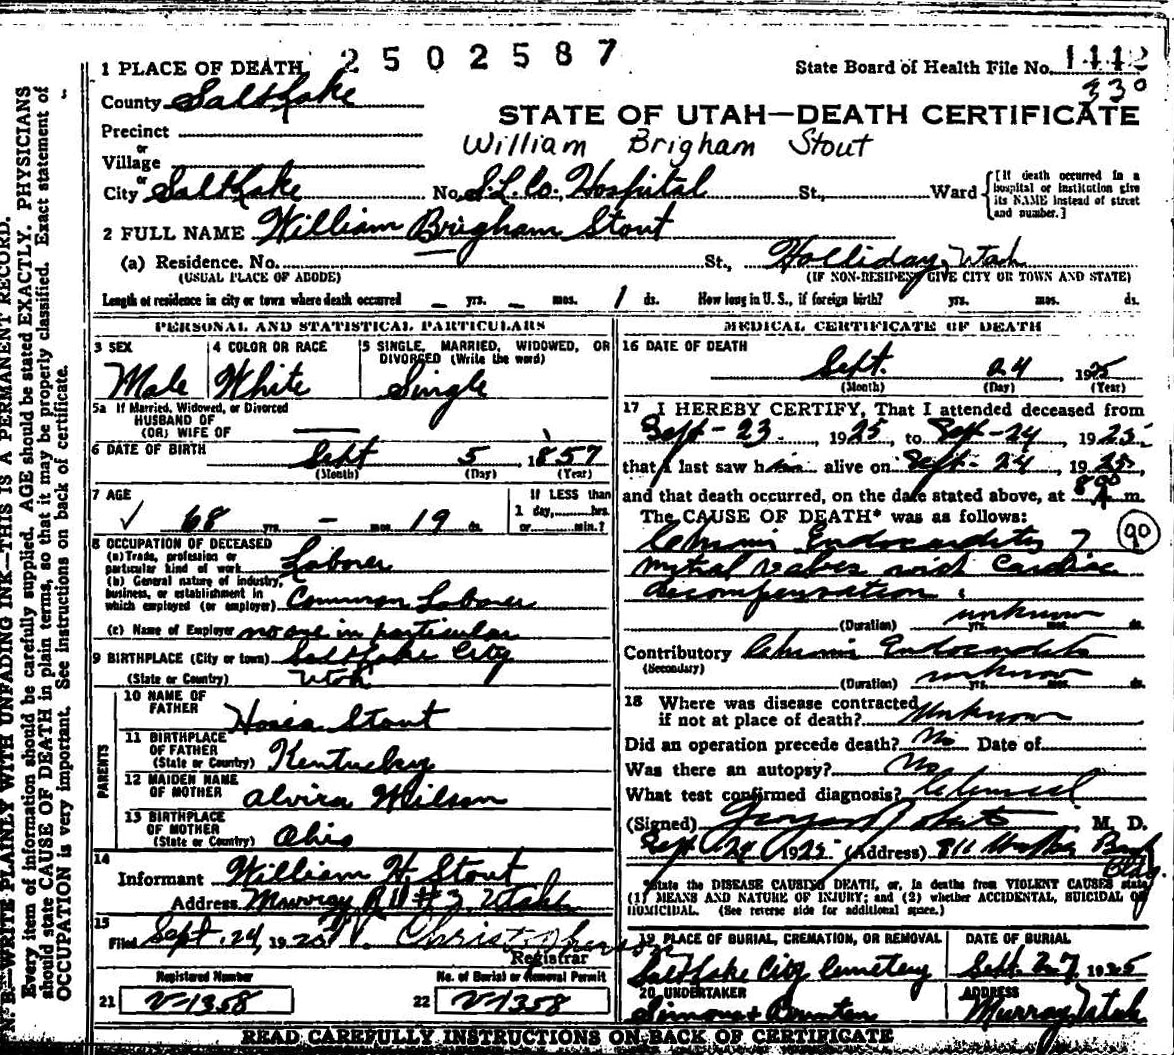 2502587
1 PLACE OF DEATH
State Board of Health File No. 1442
330
County Salt Lake
STATE OF UTAH—DEATH CERTIFICATE
Precinct
or
William Brigham Stout
Village
or
City Salt Lake No. S.L. Co. Hospital St., Ward
[If death occurred in a hospital or institution give its NAME instead of street and number.]
2 FULL NAME William Brigham Stout
(a) Residence. No. St., Holliday, Utah
(USUAL PLACE OF ABODE) (IF NON-RESIDENT GIVE CITY OR TOWN AND STATE)
Length of residence in city or town where death occurred – yrs. – mos. 1 ds. How long in U. S., if foreign birth? yrs. mos. ds.
PERSONAL AND STATISTICAL PARTICULARS
3 SEX Male
4 COLOR OR RACE White
5 SINGLE, MARRIED, WIDOWED, OR DIVORCED (Write the word) Single
5a If Married, Widowed, or Divorced
HUSBAND OF
(OR) WIFE OF
6 DATE OF BIRTH Sept 5, 1857
(Month) (Day) (Year)
7 AGE 68 yrs. – mos. 19 ds.
If LESS than
1 day, hrs.
or min.?
8 OCCUPATION OF DECEASED
(a) Trade, profession or particular kind of work Laborer
(b) General nature of industry, business, or establishment in which employed (or employer) Common Laborer
(c) Name of Employer no one in particular
9 BIRTHPLACE (City or town) Salt Lake City
(State or Country) Utah
PARENTS
10 NAME OF FATHER Hosea Stout
11 BIRTHPLACE OF FATHER (State or Country) Kentucky
12 MAIDEN NAME OF MOTHER Alvira Wilson
13 BIRTHPLACE OF MOTHER (State or Country) Ohio
14 Informant William H. Stout
Address Murray R D # 3, Utah
15 Filed Sept. 24, 1925
Registrar
Registered Number
No. of Burial or Removal Permit
21 V-1358
22 V-1358
MEDICAL CERTIFICATE OF DEATH
16 DATE OF DEATH
Sept. 24, 1925
(Month) (Day) (Year)
17 I HEREBY CERTIFY, That I attended deceased from
Sept-23, 1925, to Sept-24, 1925
that I last saw him alive on Sept-24, 1925
and that death occurred, on the date stated above, at m.
The CAUSE OF DEATH* was as follows:
90
Chronic Endocarditis
Mitral Valves with Cardiac
decompensation
unknown
(Duration) yrs. mos. ds.
Contributory Chronic Endocarditis
(Secondary)
unknown
(Duration) yrs. mos. ds.
18 Where was disease contracted
if not at place of death? Unknown
Did an operation precede death? No Date of
Was there an autopsy? No
What test confirmed diagnosis? Clinical
(Signed) M. D.
Sept 24, 1925 (Address) 811 Bldg.
*State the DISEASE CAUSING DEATH, or, in deaths from VIOLENT CAUSES state
(1) MEANS AND NATURE OF INJURY; and (2) whether ACCIDENTAL, SUICIDAL OR
HOMICIDAL. (See reverse side for additional space.)
19 PLACE OF BURIAL, CREMATION, OR REMOVAL
Salt Lake City Cemetery
DATE OF BURIAL
Sept. 27, 1925
20 UNDERTAKER
ADDRESS
Murray, Utah
READ CAREFULLY INSTRUCTIONS ON BACK OF CERTIFICATE
N. B.—WRITE PLAINLY WITH UNFADING INK—THIS IS A PERMANENT RECORD.
Every item of information should be carefully supplied. AGE should be stated EXACTLY. PHYSICIANS
should state CAUSE OF DEATH in plain terms, so that it may be properly classified. Exact statement of
OCCUPATION is very important. See instructions on back of certificate.